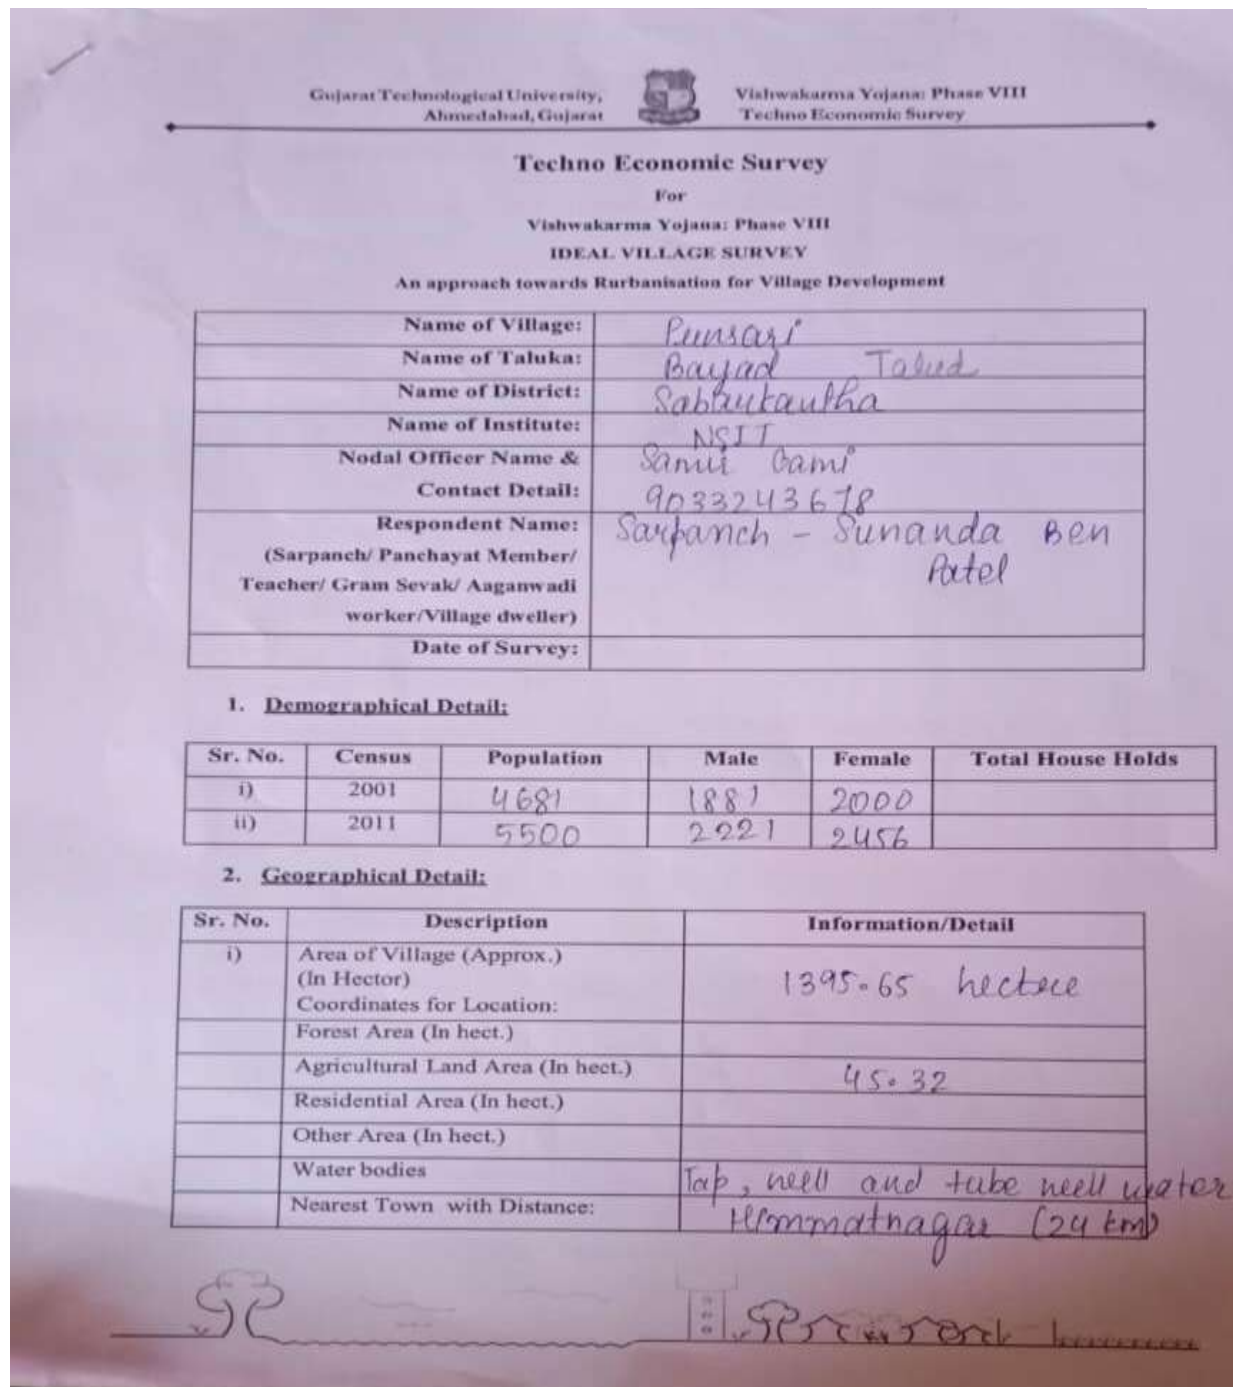 Gujarat Technological University, Vishwakarma Yojana: Phase VIII
Ahmedabad, Gujarat Techno Economic Survey
Techno Economic Survey
For
Vishwakarma Yojana: Phase VIII
IDEAL VILLAGE SURVEY
An approach towards Rurbanisation for Village Development
Name of Village: Punsari
Name of Taluka: Bayad Talud
Name of District: Sabarkantha
Name of Institute: NSIT
Nodal Officer Name & Samir Gami
Contact Detail: 9033243678
Respondent Name: Sarpanch - Sunanda Ben
(Sarpanch/ Panchayat Member/ Patel
Teacher/ Gram Sevak/ Aaganwadi
worker/Village dweller)
Date of Survey:
1. Demographical Detail:
Sr. No. Census Population Male Female Total House Holds
i) 2001 4681 1881 2000
ii) 2011 5500 2221 2456
2. Geographical Detail:
Sr. No. Description Information/Detail
i) Area of Village (Approx.)
(In Hector) 1395.65 hectere
Coordinates for Location:
Forest Area (In hect.)
Agricultural Land Area (In hect.) 45.32
Residential Area (In hect.)
Other Area (In hect.)
Water bodies Tap, well and tube well water
Nearest Town with Distance: Himmatnagar (24 km)